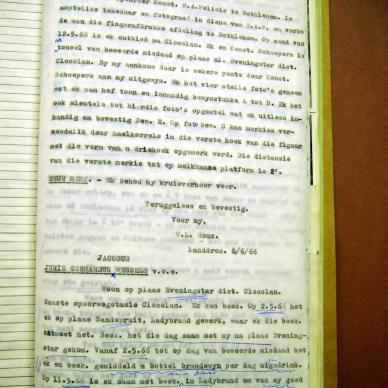 Konst. S.A.Polisie te Bethlehem. Is
amptelike tekenaar en fotograaf in diens van S.A.P. en verbonde
aan die vingerafdruk afdeling te Bethlehem. Op aand van
12.5.66 is ek ontbied na Clocolan. Ek en Konst. Scheepers is
toneel van beweerde misdaad op plaas Eveningstar dist.
Clocolan. By my aankoms daar is sekere punte deur Konst.
Scheepers aan my uitgewys. Ek het vier stelle foto's geneem
wat ek aan hof toon en inhandig bewysstukke A tot D. Ek het
ook sleutels tot hierdie foto's opgestel wat ek uitlees in-
handig en bevestig Bew. E. Op foto bew. C kan merkies ver-
moedelik deur haelkorrels in die verste hoek van die figuur
met die vorm van 'n driehoek opgemerk word. Die distansie
van die verste merkie tot op melkkanne platform is 2'.
DEUR BESK. - Ek behou my kruisverhoor voor.
Teruggelees en bevestig.
Voor my,
Landdros. 8/6/66
JACOBUS
WESSELS v.o.e.
Woon op plaas Eveningstar dist. Clocolan.
Naaste spoorwegstasie Clocolan. Ek ken besk. Op 2.5.66
het ek op plaas Ladybrand gewerk, waar ek die besk.
ontmoet het. Besk. het die dag saam met my na plaas Evening-
star gekom. Vanaf 2.5.66 tot op dag van beweerde misdaad het
ek en besk. gemiddeld 'n bottel brandewyn per dag uitgedrink.
Op 11.5.66 is ek saam met besk. in Ladybrand om van my goed